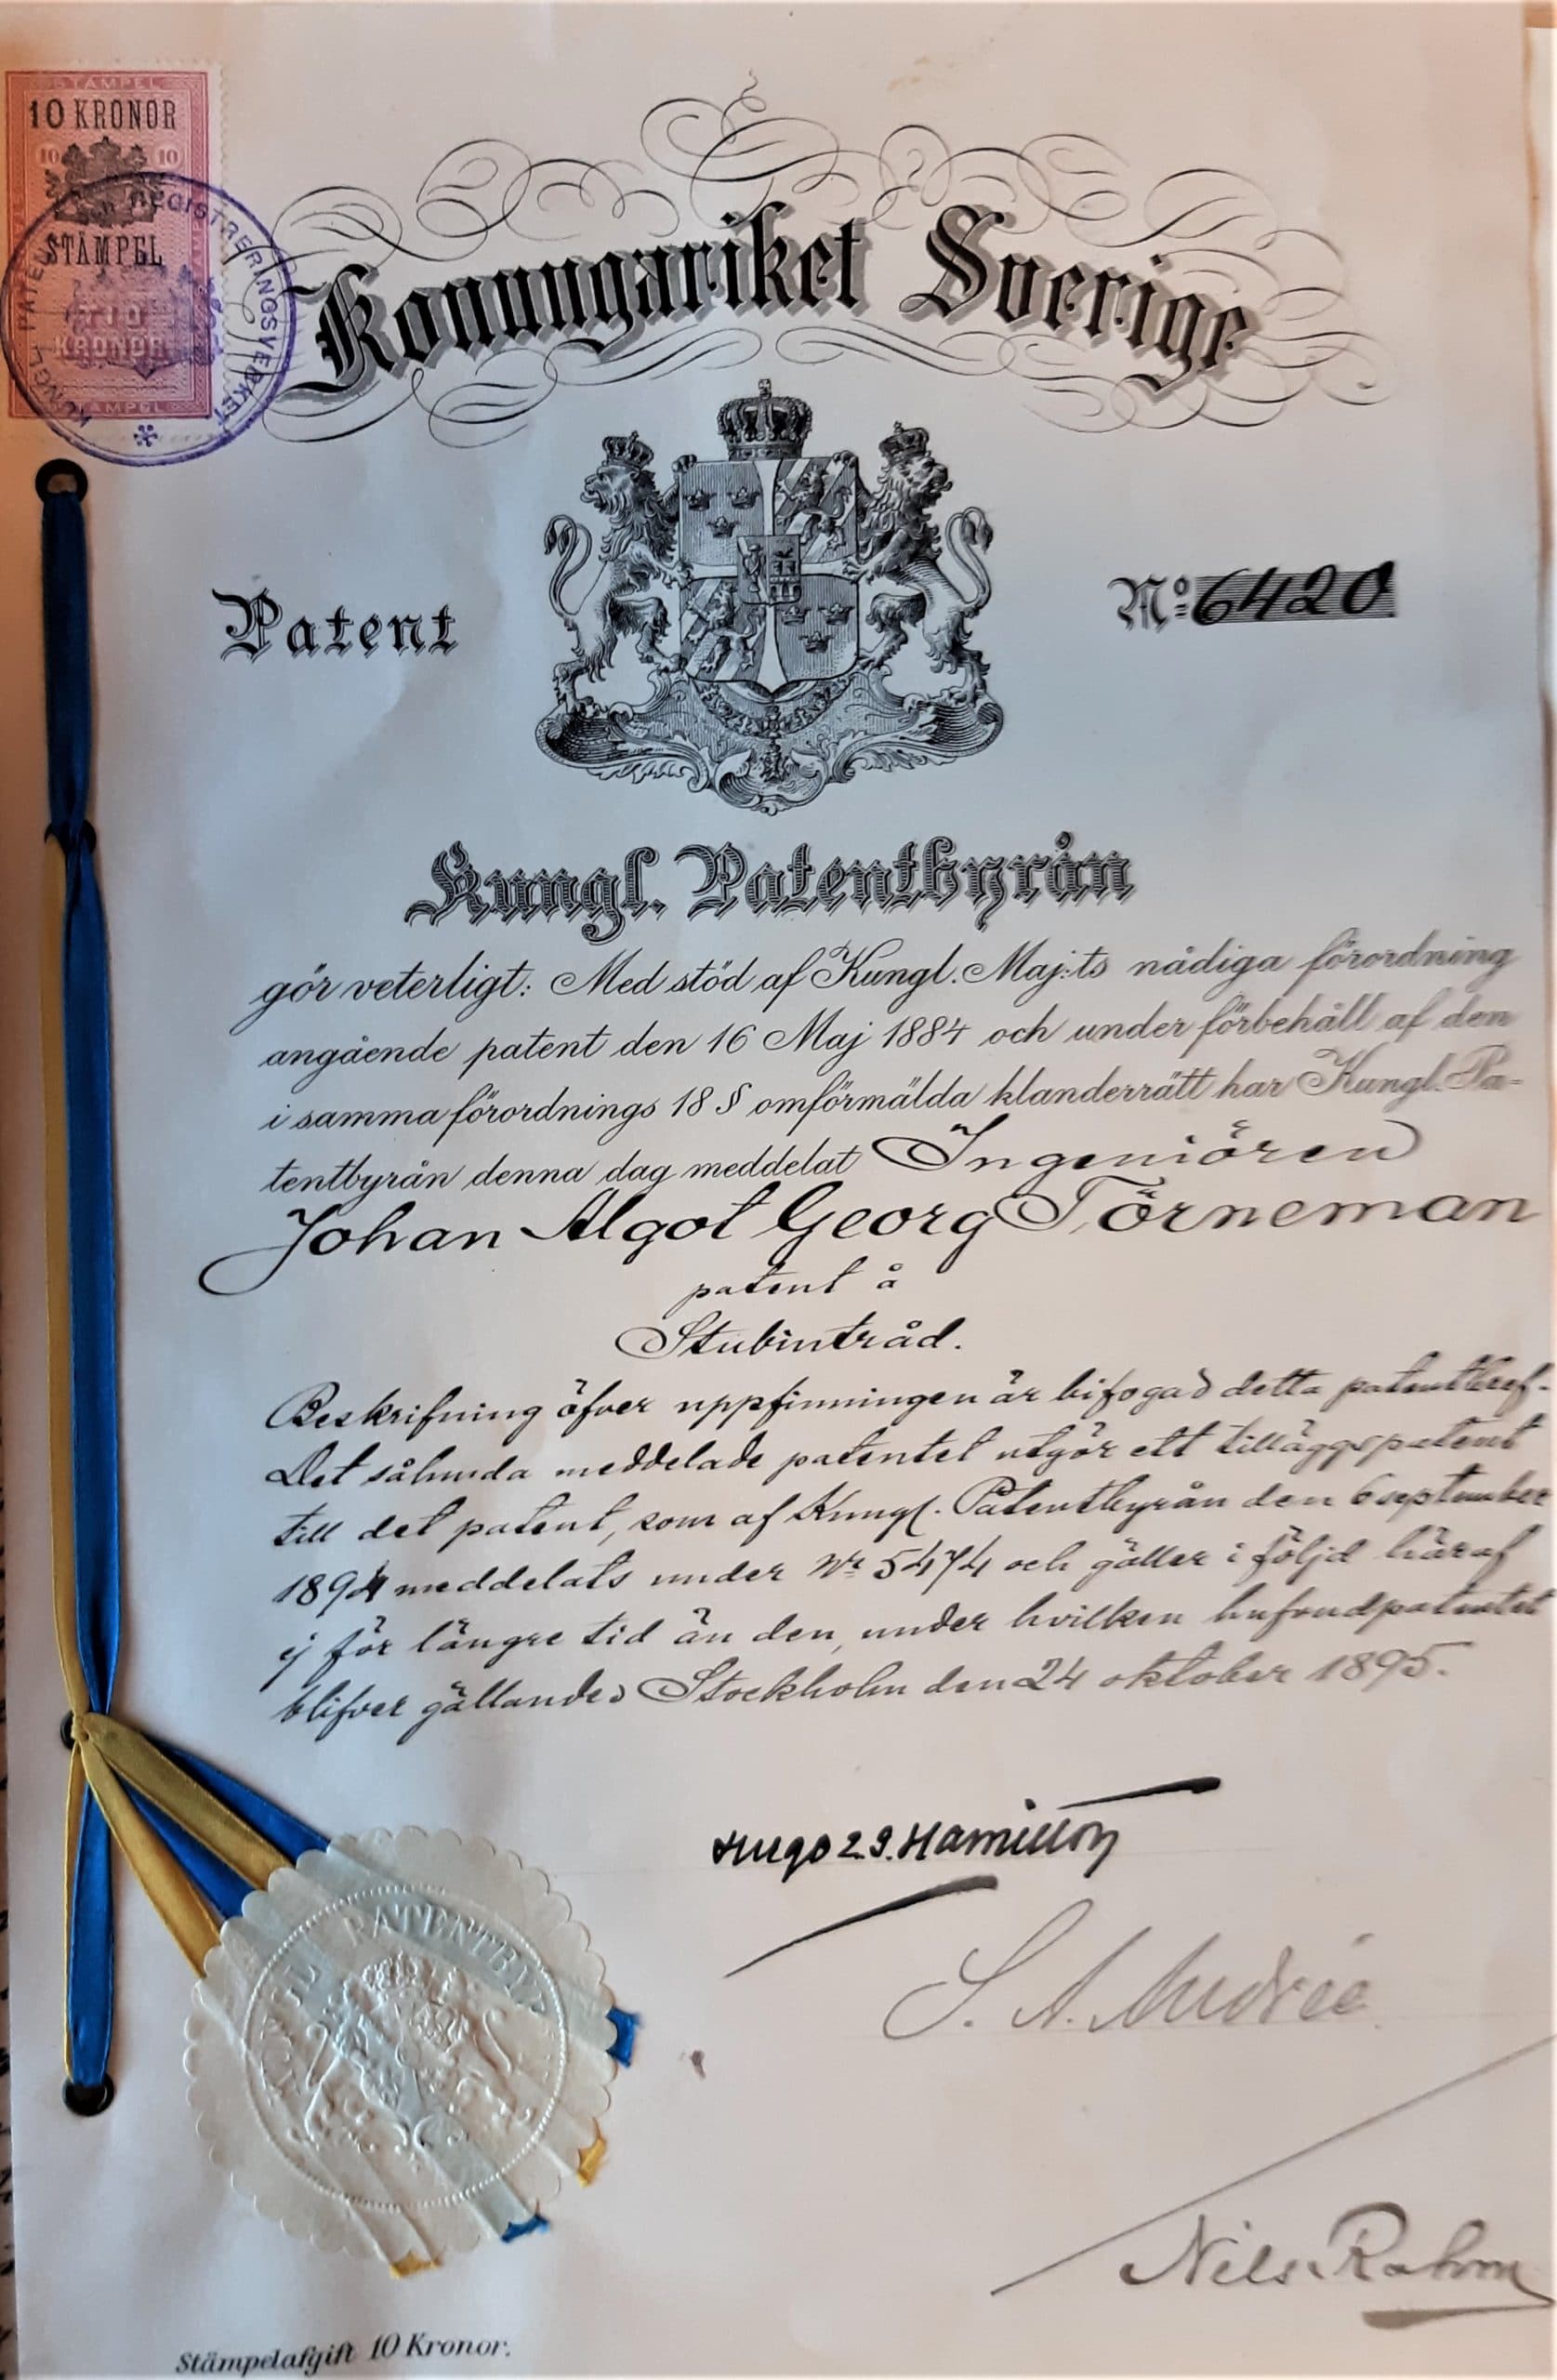 STÄMPEL
10 KRONOR
10 10
STÄMPEL
TIO
KRONOR
STÄMPEL
KONGL. PATENT OCH REGISTRERINGSVERKET
Konungariket Sverige
Patent
No 6420
Kungl. Patentbyrån
gör veterligt: Med stöd af Kungl. Maj:ts nådiga förordning
angående patent den 16 Maj 1884 och under förbehåll af den
i samma förordnings 18 § omförmälda klanderrätt har Kungl. Pa-
tentbyrån denna dag meddelat Ingeniören
Johan Algot Georg Törneman
patent å
Stubintråd.
Beskrifning öfver uppfinningen är bifogad detta patentbref.
Det sålunda meddelade patentet utgör ett tilläggspatent
till det patent, som af Kungl. Patentbyrån den 6 september
1894 meddelats under Nr 5474 och gäller i följd häraf
ej för längre tid än den, under hvilken hufvudpatentet
blifver gällande. Stockholm den 24 oktober 1895.
Hugo E. G. Hamilton
S. A. Andrée
Nils Rahm
KONGL. PATENTBYRÅN
Stämpelafgift 10 Kronor.